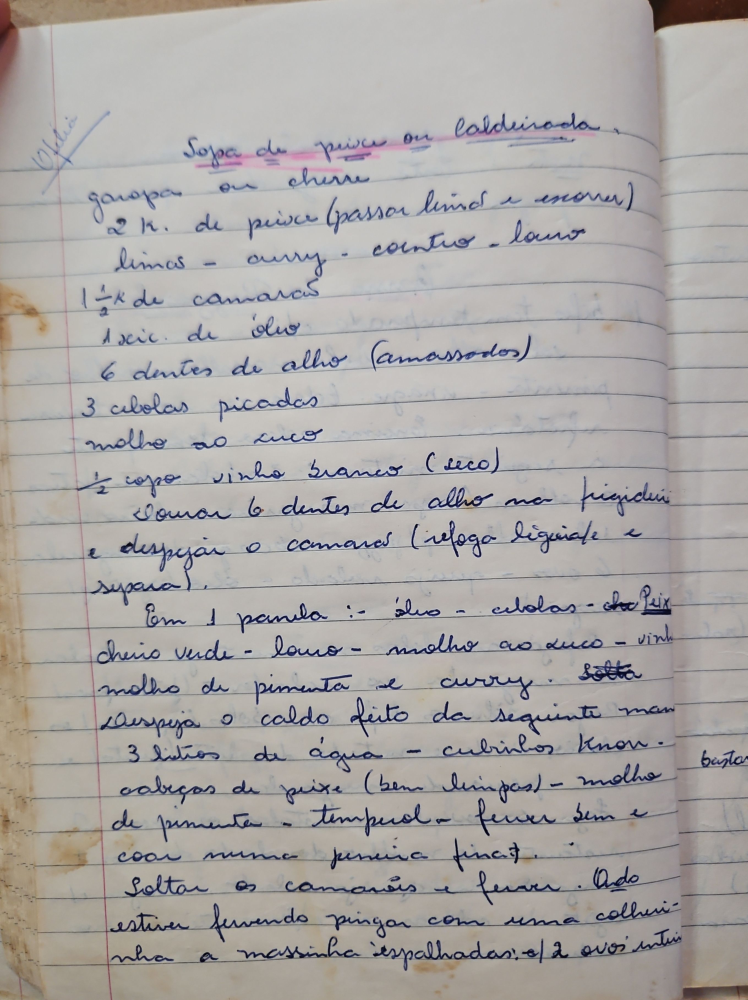 Ofélia
Sopa de peixe ou Caldeirada.
garopa ou cherne
2 k. de peixe (passar limão e escorrer)
limão - curry - coentro - louro
1 1/2 k de camarão
1 xic. de óleo
6 dentes de alho (amassados)
3 cebolas picadas
molho ao suco
1/2 copo vinho branco (seco)
Dourar 6 dentes de alho na frigidei
e despejar o camarão (refoga ligeira/e e
separa).
Em 1 panela :- óleo - cebolas - Peix
cheiro verde - louro - molho ao suco - vinh
molho de pimenta e curry. Solta
Despeja o caldo feito da seguinte man
3 litros de água - cubinhos Knorr.
cabeças de peixe (bem limpas) - molho
de pimenta - temperol - ferver bem e
coar numa peneira fina.
Soltar os camarões e ferver. Qdo
estiver fervendo pingar com uma colheri-
nha a massinha espalhadas: c/ 2 ovos intei
bastan